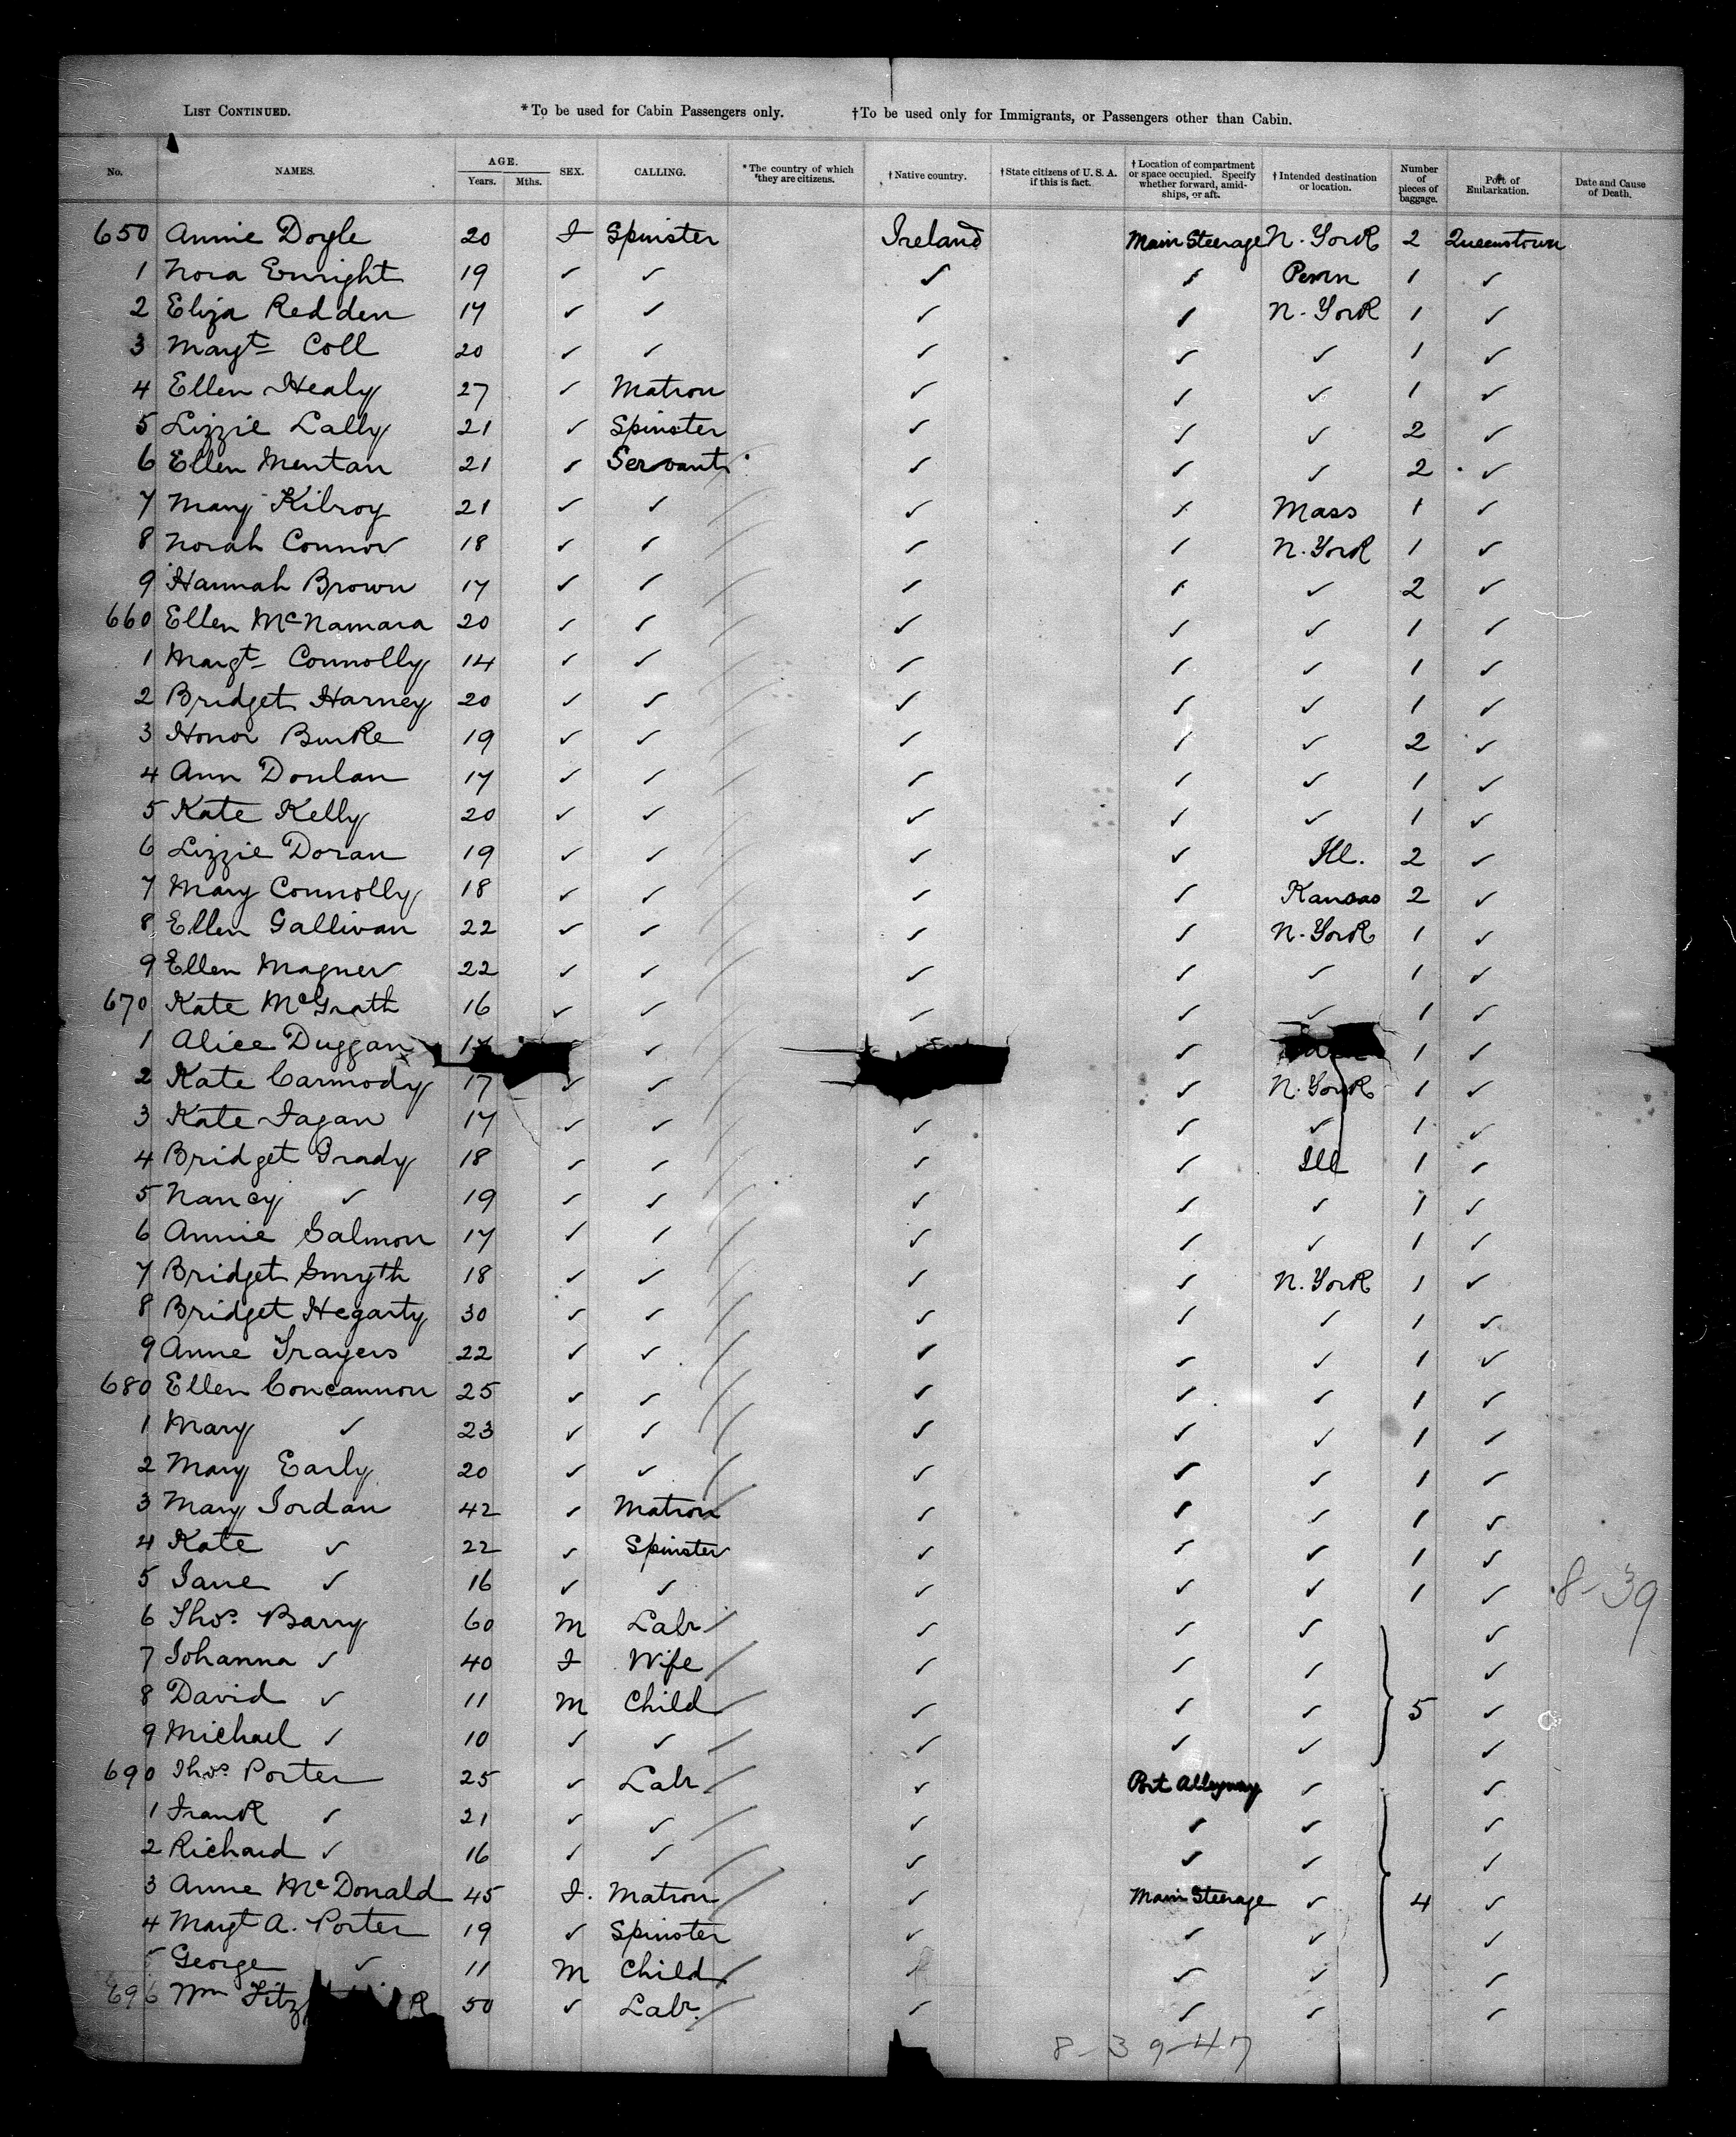 LIST CONTINUED. *To be used for Cabin Passengers only. †To be used only for Immigrants, or Passengers other than Cabin.
No. NAMES. AGE. Years. Mths. SEX. CALLING. *The country of which they are citizens. †Native country. †State citizens of U. S. A. if this is fact. †Location of compartment or space occupied. Specify whether forward, amidships, or aft. †Intended destination or location. Number of pieces of baggage. Port of Embarkation. Date and Cause of Death.
650 Annie Doyle 20 F Spinster Ireland Main Steerage N. York 2 Queenstown
1 Nora Enright 19 ✓ ✓ ✓ ✓ Penn 1 ✓
2 Eliza Redden 17 ✓ ✓ ✓ ✓ N. York 1 ✓
3 Margt Coll 20 ✓ ✓ ✓ ✓ ✓ 1 ✓
4 Ellen Healy 27 ✓ Matron ✓ ✓ ✓ 1 ✓
5 Lizzie Lally 21 ✓ Spinster ✓ ✓ ✓ 2 ✓
6 Ellen Mentan 21 ✓ Servant ✓ ✓ ✓ 2 ✓
7 Mary Kilroy 21 ✓ ✓ ✓ ✓ Mass 1 ✓
8 Norah Connor 18 ✓ ✓ ✓ ✓ N. York 1 ✓
9 Hannah Brown 17 ✓ ✓ ✓ ✓ ✓ 2 ✓
660 Ellen McNamara 20 ✓ ✓ ✓ ✓ ✓ 1 ✓
1 Margt Connolly 14 ✓ ✓ ✓ ✓ ✓ 1 ✓
2 Bridget Harney 20 ✓ ✓ ✓ ✓ ✓ 1 ✓
3 Honor Burke 19 ✓ ✓ ✓ ✓ ✓ 2 ✓
4 Ann Donlan 17 ✓ ✓ ✓ ✓ ✓ 1 ✓
5 Kate Kelly 20 ✓ ✓ ✓ ✓ ✓ 1 ✓
6 Lizzie Doran 19 ✓ ✓ ✓ ✓ Ill. 2 ✓
7 Mary Connolly 18 ✓ ✓ ✓ ✓ Kansas 2 ✓
8 Ellen Gallivan 22 ✓ ✓ ✓ ✓ N. York 1 ✓
9 Ellen Magner 22 ✓ ✓ ✓ ✓ ✓ 1 ✓
670 Kate McGrath 16 ✓ ✓ ✓ ✓ ✓ 1 ✓
1 Alice Duggan ✓ ✓ 1 ✓
2 Kate Carmody 17 ✓ ✓ ✓ N. York 1 ✓
3 Kate Fagan 17 ✓ ✓ ✓ ✓ ✓ 1 ✓
4 Bridget Grady 18 ✓ ✓ ✓ ✓ Ill 1 ✓
5 Nancy ✓ 19 ✓ ✓ ✓ ✓ ✓ 1 ✓
6 Annie Salmon 17 ✓ ✓ ✓ ✓ ✓ 1 ✓
7 Bridget Smyth 18 ✓ ✓ ✓ ✓ N. York 1 ✓
8 Bridget Hegarty 30 ✓ ✓ ✓ ✓ ✓ 1 ✓
9 Anne Trayers 22 ✓ ✓ ✓ ✓ ✓ 1 ✓
680 Ellen Concannon 25 ✓ ✓ ✓ ✓ ✓ 1 ✓
1 Mary ✓ 23 ✓ ✓ ✓ ✓ ✓ 1 ✓
2 Mary Early 20 ✓ ✓ ✓ ✓ ✓ 1 ✓
3 Mary Jordan 42 ✓ Matron ✓ ✓ ✓ 1 ✓
4 Kate ✓ 22 ✓ Spinster ✓ ✓ ✓ 1 ✓
5 Jane ✓ 16 ✓ ✓ ✓ ✓ ✓ 1 ✓ 8-39
6 Thos. Barry 60 M Labr ✓ ✓ ✓ ✓
7 Johanna ✓ 40 F Wife ✓ ✓ ✓ ✓
8 David ✓ 11 M Child ✓ ✓ ✓ 5 ✓
9 Michael ✓ 10 ✓ ✓ ✓ ✓ ✓ ✓
690 Thos. Porter 25 ✓ Labr ✓ Port Alleyway ✓ ✓
1 Frank ✓ 21 ✓ ✓ ✓ ✓ ✓ ✓
2 Richard ✓ 16 ✓ ✓ ✓ ✓ ✓ ✓
3 Anne McDonald 45 F. Matron ✓ Main Steerage ✓ 4 ✓
4 Margt A. Porter 19 ✓ Spinster ✓ ✓ ✓ ✓
5 George ✓ 11 M Child ✓ ✓ ✓ ✓
696 Wm 50 ✓ Labr. ✓ ✓ ✓ ✓
8-39-47